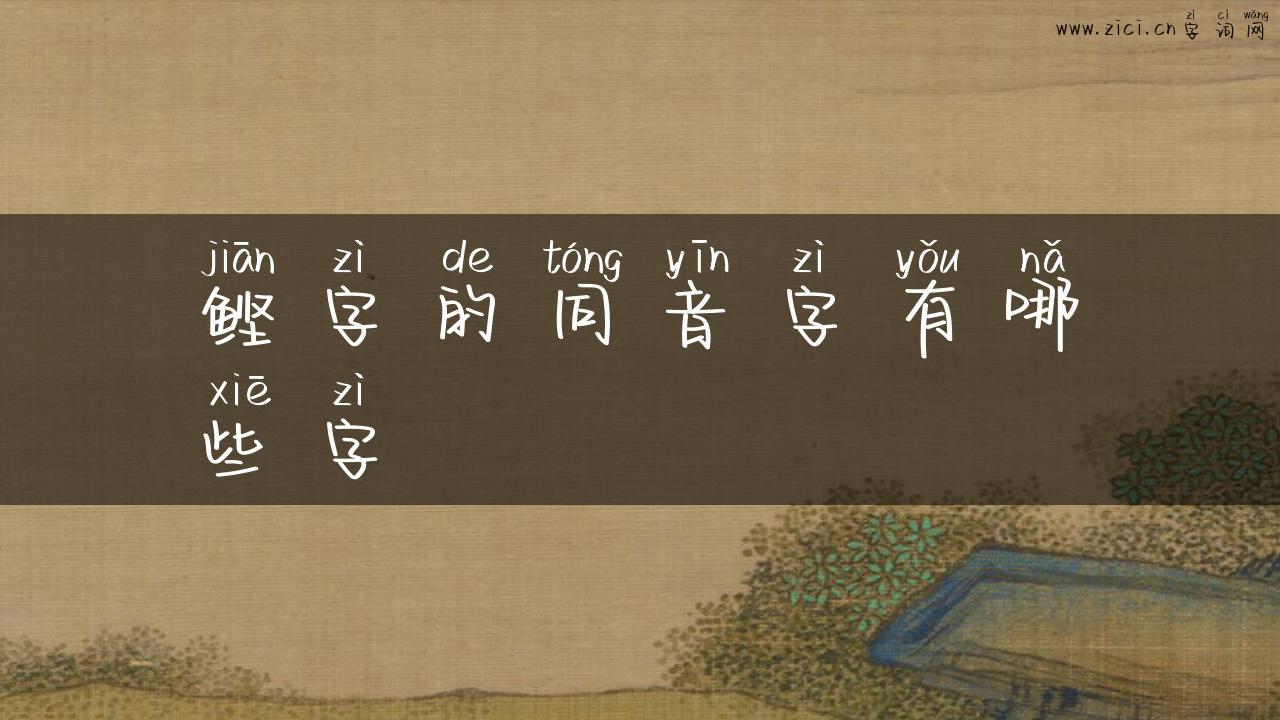 zì cí wǎng
www.zici.cn 字 词 网
jiān zì de tóng yīn zì yǒu nǎ
鲣 字 的 同 音 字 有 哪
xiē zì
些 字